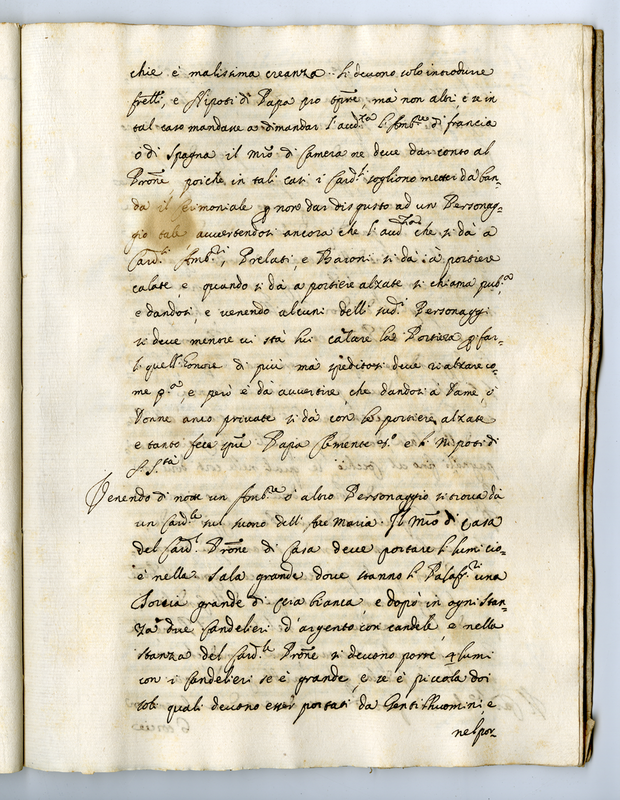 chie è malissima creanza. Si devono solo introdurre
fratelli, e Niposi di Papa pro tpre, mà non altri, e se in
tal caso mandasse a dimandar l'aud.za l'Amb.re di francia
o di Spagna il Mro di Camera ne deve dar conto al
Prone, poiche in tali casi i Card.li sogliono metter da ban=
da il serimoniale p non dar disgusto ad un Personag=
gio tale avvertendosi ancora che l'aud.za che si dà a
Card.li Amb.ri, Prelati, e Baroni si dà à portiere
calate, e quando si dà a portiere alzate si chiama pub.ca
e dandosi, e venendo alcuni delli sud.i Personaggi
si deve mentre vi stà lui calare la Portiera p far=
li quell'honore di più mà speditosi deve rialzare co=
me p.a e però è dà avvertire, che dandosi a Dame, ò
Donne anco private si dà con le portiere alzate
e tanto fece Papa Clemente et i Niposi di
S. S.tà
Venendo di notte un Amb.re o altro Personaggio si trova dà
un Card.le sul suono dell'Ave Maria Il Mro di Casa
del Card.l Prone di Casa deve portare li lumi cio=
è nella Sala grande dove stanno li Palaf.ri una
Torcia grande di cera bianca e dopo in ogni stan=
za due Candelieri d'argento con candele, e nella
stanza del Card.le Prone si devono porre 4 lumi
con i Candelieri se è grande, e se è piccola doi
soli quali devono esser portati da Gentilhuomini e
nel por=